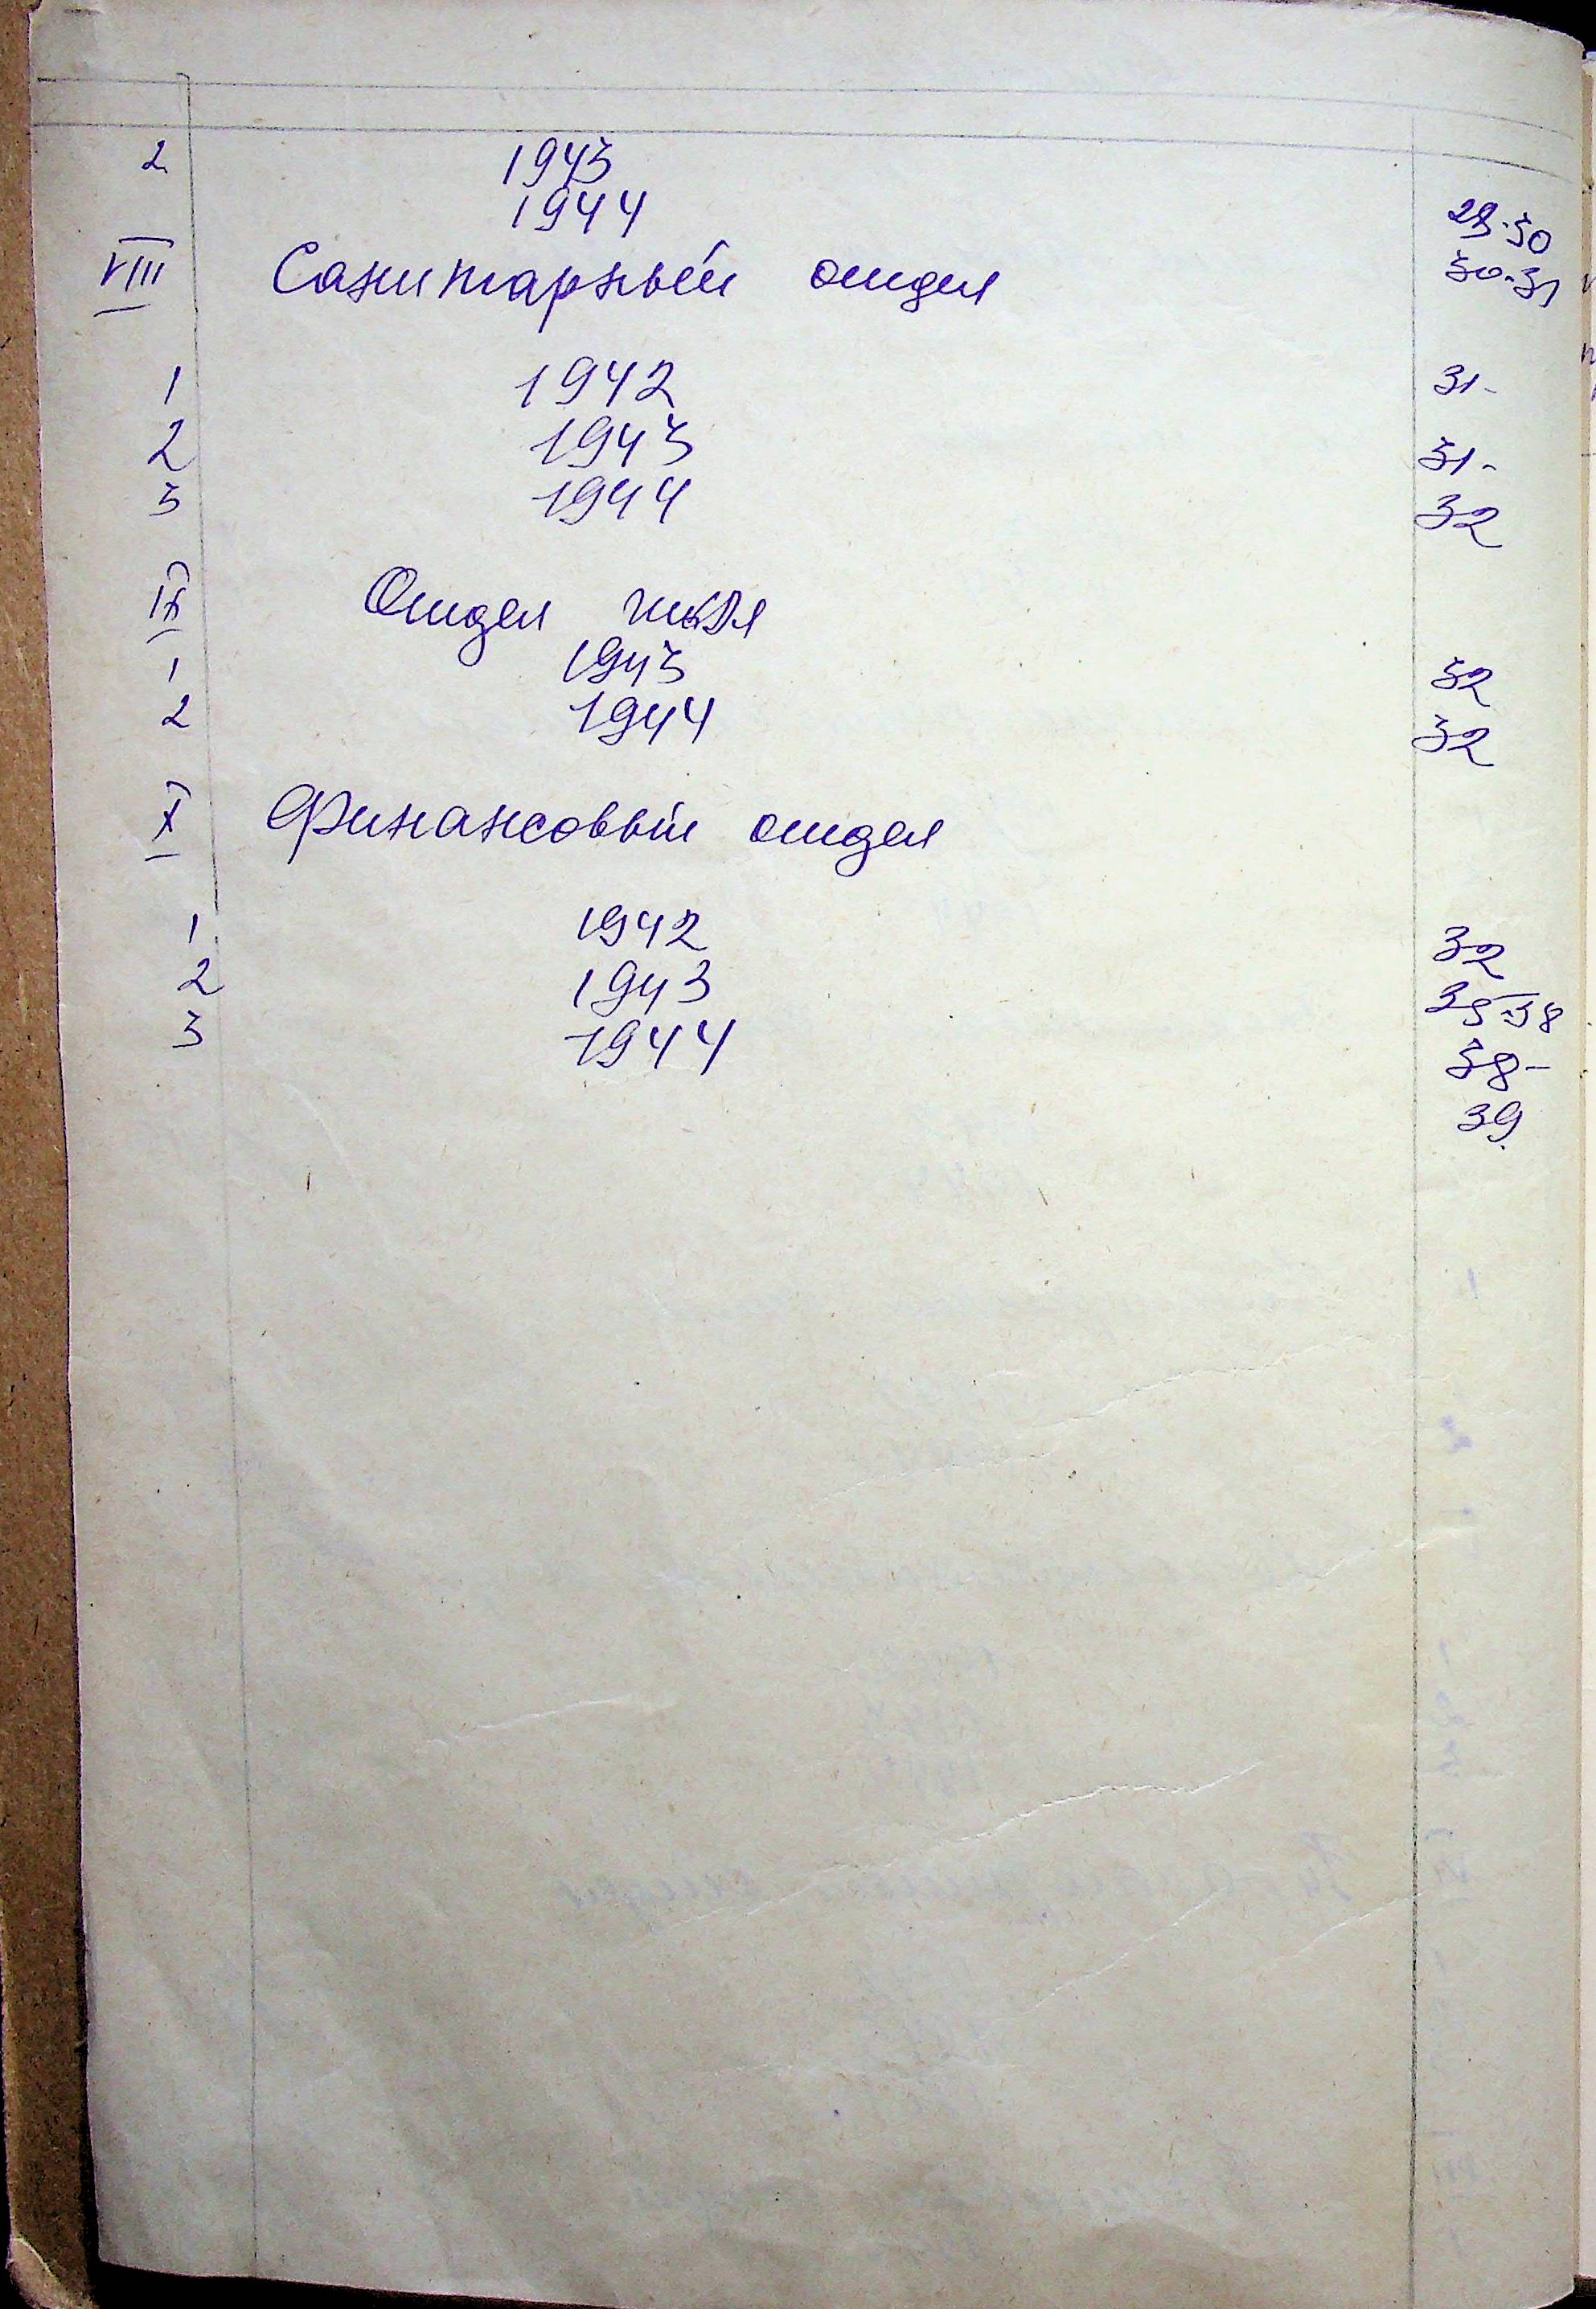 2 1943
1944 29-30
VIII Санитарный отдел 30-31
1 1942 31-
2 1943 31-
3 1944 32
IX Отдел
1 1943 32
2 1944 32
X Финансовый отдел
1 1942 32
2 1943 35-38
3 1944 38-
39.